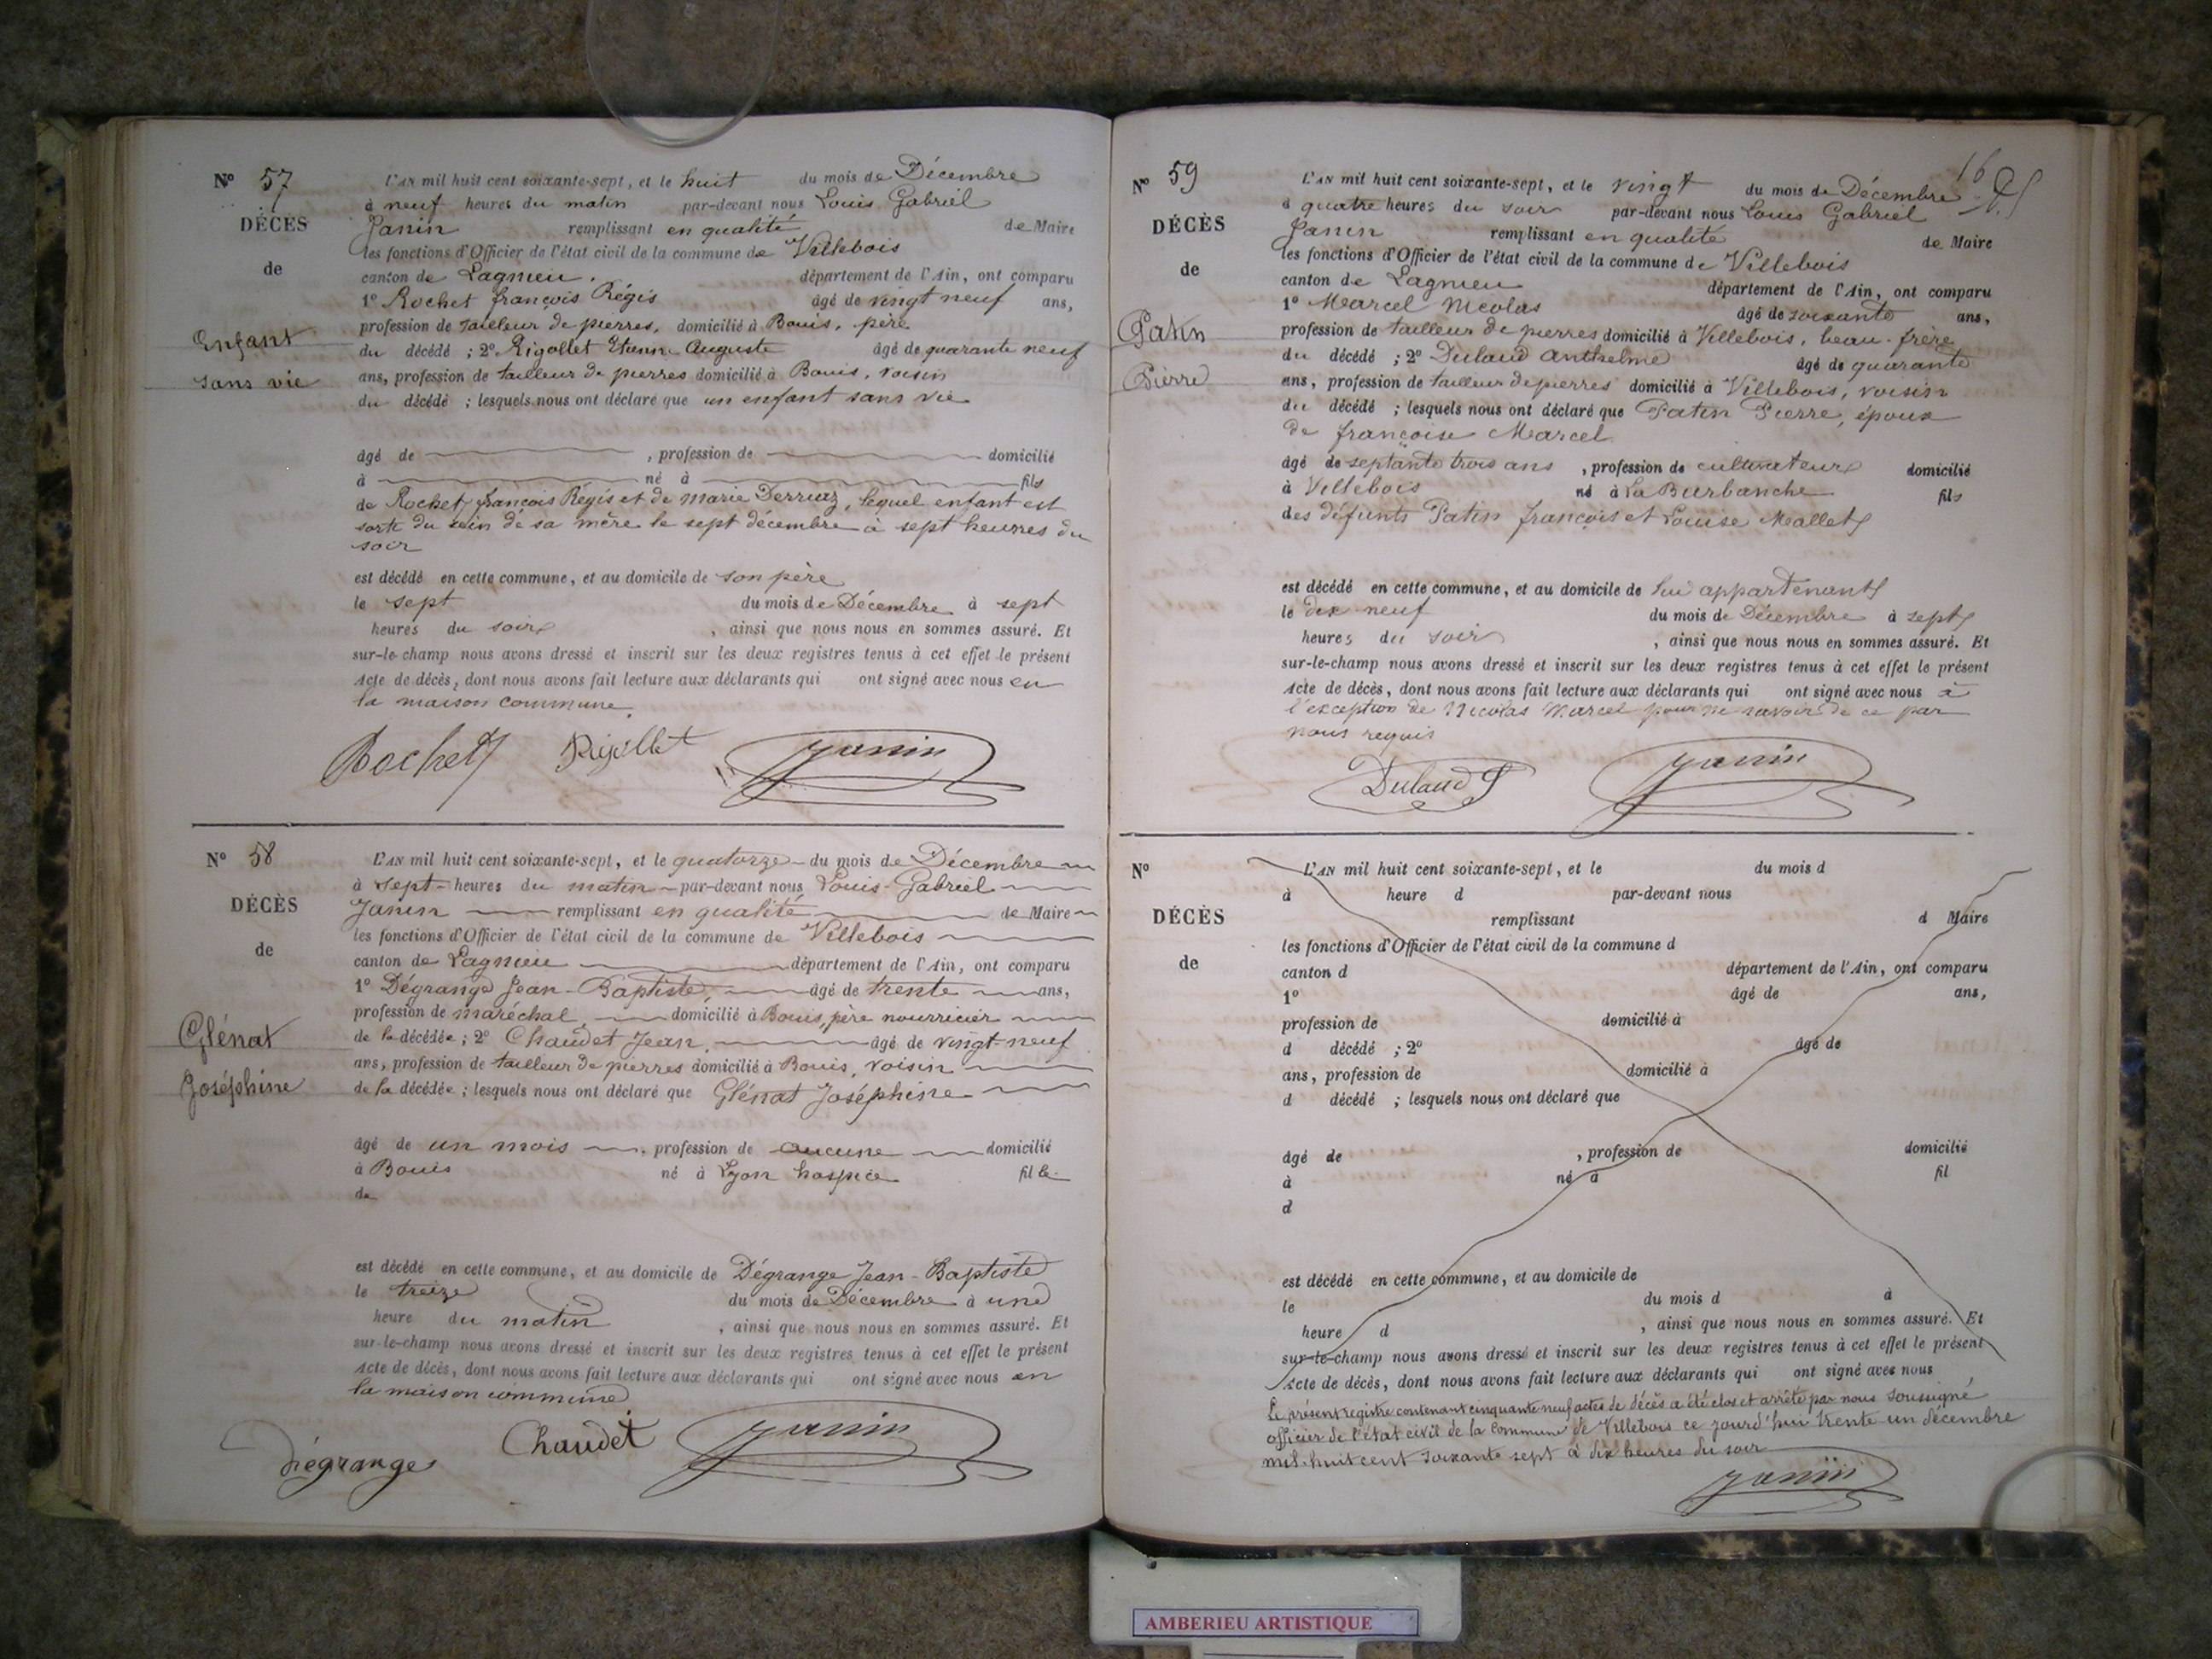 N° 57
DÉCÈS
de
Enfant
sans vie
L'AN mil huit cent soixante-sept, et le huit du mois de Décembre
à neuf heures du matin par-devant nous Louis Gabriel
Janin remplissant en qualité de Maire
les fonctions d'Officier de l'état civil de la commune de Villebois
canton de Lagnieu. département de l'Ain, ont comparu
1° Rochet françois Régis âgé de vingt neuf ans,
profession de tailleur de pierres, domicilié à Bouis, père
du décédé ; 2° Rigollet Etienne Auguste âgé de quarante neuf
ans, profession de tailleur de pierres domicilié à Bouis, voisin
du décédé ; lesquels nous ont déclaré que un enfant sans vie
âgé de , profession de domicilié
à né à fils
de Rochet françois Régis et de marie Derruaz, lequel enfant est
sorti du sein de sa mère le sept décembre à sept heures du
soir
est décédé en cette commune, et au domicile de son père
le sept du mois de Décembre à sept
heures du soir , ainsi que nous nous en sommes assuré. Et
sur-le-champ nous avons dressé et inscrit sur les deux registres tenus à cet effet le présent
Acte de décès, dont nous avons fait lecture aux déclarants qui ont signé avec nous en
la maison commune.
Rochet Rigollet Janin
N° 58
DÉCÈS
de
Glénat
Joséphine
L'AN mil huit cent soixante-sept, et le quatorze du mois de Décembre
à sept heures du matin par-devant nous Louis-Gabriel
Janin remplissant en qualité de Maire
les fonctions d'Officier de l'état civil de la commune de Villebois
canton de Lagnieu département de l'Ain, ont comparu
1° Dégrange Jean-Baptiste, âgé de trente ans,
profession de maréchal domicilié à Bouis, père nourricier
de la décédée ; 2° Chaudet Jean, âgé de vingt-neuf
ans, profession de tailleur de pierres domicilié à Bouis, voisin
de la décédée ; lesquels nous ont déclaré que Glénat Joséphine
âgé de un mois , profession de aucune domicilié
à Bouis né à Lyon hospice fille
de
est décédé en cette commune, et au domicile de Dégrange Jean-Baptiste
le treize du mois de Décembre à une
heure du matin , ainsi que nous nous en sommes assuré. Et
sur-le-champ nous avons dressé et inscrit sur les deux registres tenus à cet effet le présent
Acte de décès, dont nous avons fait lecture aux déclarants qui ont signé avec nous en
la maison commune.
Dégrange Chaudet Janin
16
N° 59
DÉCÈS
de
Patin
Pierre
L'AN mil huit cent soixante-sept, et le vingt du mois de Décembre
à quatre heures du soir par-devant nous Louis Gabriel
Janin remplissant en qualité de Maire
les fonctions d'Officier de l'état civil de la commune de Villebois
canton de Lagnieu département de l'Ain, ont comparu
1° Marcel Nicolas âgé de soixante ans,
profession de tailleur de pierres domicilié à Villebois, beau-frère
du décédé ; 2° Dulaud Anthelme âgé de quarante
ans, profession de tailleur de pierres domicilié à Villebois, voisin
du décédé ; lesquels nous ont déclaré que Patin Pierre, époux
de françoise Marcel
âgé de septante trois ans , profession de cultivateur domicilié
à Villebois né à La Burbanche fils
des défunts Patin françois et Louise Mallet
est décédé en cette commune, et au domicile de lui appartenant
le dix neuf du mois de Décembre à sept
heures du soir , ainsi que nous nous en sommes assuré. Et
sur-le-champ nous avons dressé et inscrit sur les deux registres tenus à cet effet le présent
Acte de décès, dont nous avons fait lecture aux déclarants qui ont signé avec nous à
l'exception de Nicolas Marcel pour ne savoir de ce par
nous requis
Dulaud Janin
N°
DÉCÈS
de
L'AN mil huit cent soixante-sept, et le du mois d
à heure d par-devant nous
remplissant d Maire
les fonctions d'Officier de l'état civil de la commune d
canton d département de l'Ain, ont comparu
1° âgé de ans,
profession de domicilié à
d décédé ; 2° âgé de
ans, profession de domicilié à
d décédé ; lesquels nous ont déclaré que
âgé de , profession de domicilié
à né à fil
d
est décédé en cette commune, et au domicile de
le du mois d à
heure d , ainsi que nous nous en sommes assuré. Et
sur-le-champ nous avons dressé et inscrit sur les deux registres tenus à cet effet le présent
Acte de décès, dont nous avons fait lecture aux déclarants qui ont signé avec nous
Le présent registre contenant cinquante neuf actes de décès a été clos et arrêté par nous soussigné
officier de l'état civil de la Commune de Villebois ce jourd'hui trente un décembre
mil-huit cent soixante sept à dix heures du soir
Janin
AMBERIEU ARTISTIQUE